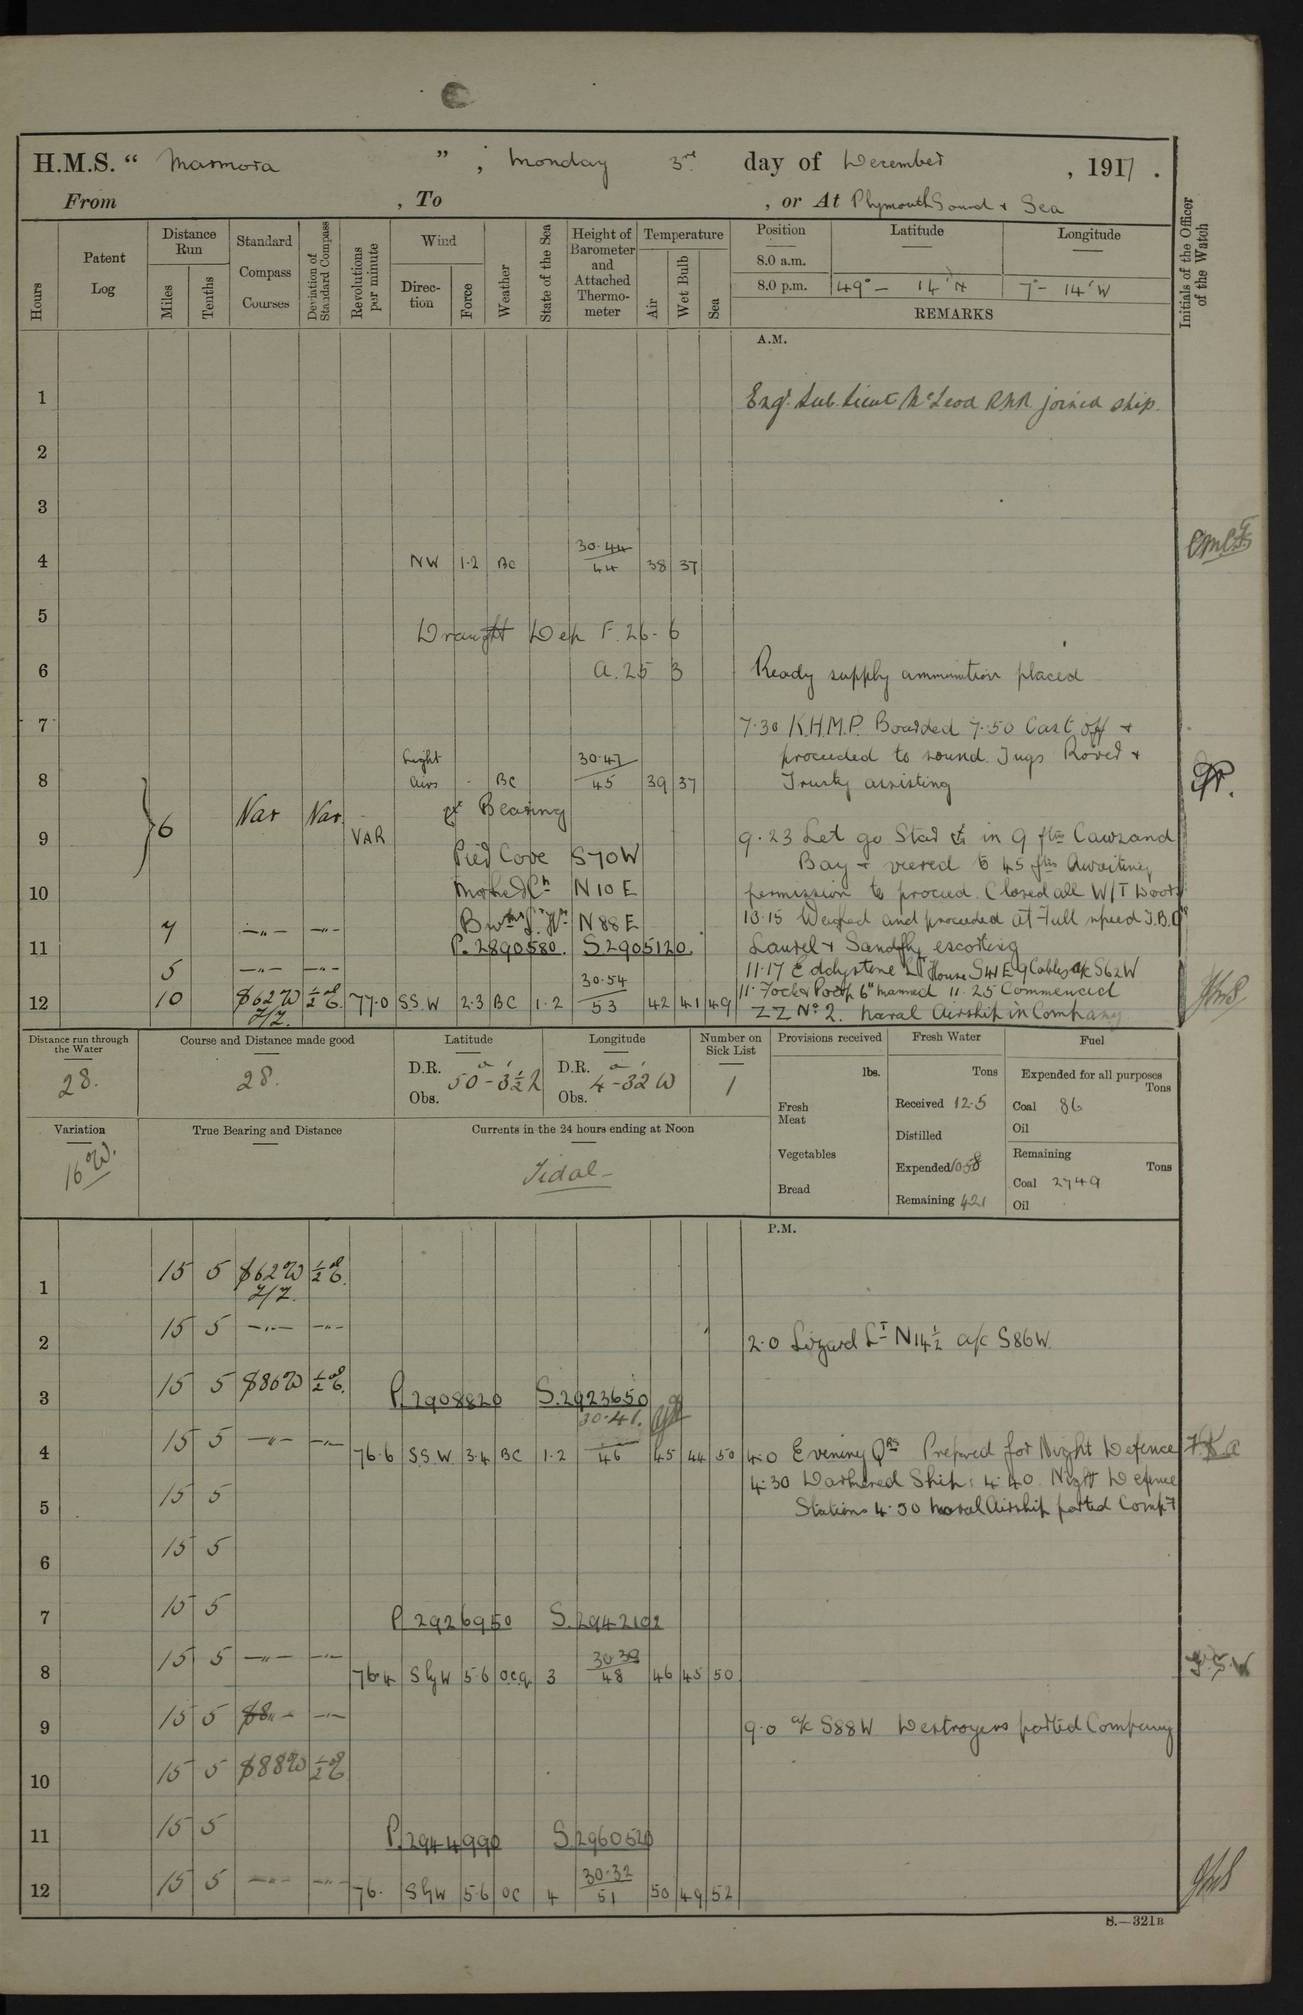 H.M.S. “ Marmora ” , Monday 3rd day of December , 1917 .
From , To , or At Plymouth Sound & Sea
Hours
Patent Log
Distance Run
Miles
Tenths
Standard Compass Courses
Deviation of Standard Compass
Revolutions per minute
Wind
Direction
Force
Weather
State of the Sea
Height of Barometer and Attached Thermometer
Temperature
Air
Wet Bulb
Sea
Position Latitude Longitude
8.0 a.m.
8.0 p.m. 49° – 14' N 7° – 14' W
REMARKS
Initials of the Officer of the Watch
A.M.
1 Engr. Sub. Lieut McLeod RNR joined ship.
2
3
4 NW 1·2 BC 30·44 44 38 37
5
Draught Dep F. 26 - 6
6 A. 25 3 Ready supply ammunition placed
7 7·30 K.H.M.P. Boarded 7·50 Cast off +
Light proceeded to sound. Tugs Rover +
8 Airs - BC 30·47 45 39 37 Trusty assisting
Bearing
9 6 Var Var. VAR 9·23 Let go Stad in 9 fms Cawsand
Pied Cove S70W Bay + veered to 45 fms Awaiting
10 N 10 E permission to proceed. Closed all W/T Doors
N 88 E 10·15 Weighed and proceeded at Full speed T.B.Ds
11 7 —"— —"— P. 2890580. S. 2905120. Laurel + Sandfly escorting
5 —"— —"— 11·17 Eddystone Lt House S41E 9 Cables a/c S62W
12 10 S62W Z/Z. ½° E. 77·0 SS.W 2·3 BC 1·2 30·54 53 42 41 49 6" manned 11·25 Commenced
ZZ No 2. Naval Airship in Company
Distance run through the Water
28.
Course and Distance made good
28.
Latitude
D.R. 50° - 3½' N
Obs.
Longitude
D.R. 4° - 32' W
Obs.
Number on Sick List
1
Provisions received
lbs.
Fresh Meat
Vegetables
Bread
Fresh Water
Tons
Received 12·5
Distilled
Expended 1058
Remaining 421
Fuel
Expended for all purposes
Tons
Coal 86
Oil
Remaining
Tons
Coal 2749
Oil
Variation
16° W.
True Bearing and Distance
Currents in the 24 hours ending at Noon
Tidal
P.M.
1 15 5 S62W Z/Z. ½° E.
2 15 5 —"— —"— 2·0 Lizard Lt N14½ a/c S86W.
3 15 5 S86W ½° E. P. 2908820 S. 2923650
4 15 5 —"— —"— 76·6 S.S.W 3·4 BC 1·2 30·41. 46 45 44 50 4·0 Evening Qrs Prepared for Night Defence
4·30 Darkened Ship: 4·40. Night Defence
5 15 5 Stations 4·50 Naval Airship parted Company
6 15 5
7 15 5 P. 2926950 S. 2942102
8 15 5 —"— —"— 76·4 SbyW 5·6 o.c.q. 3 30·38 48 46 45 50
9 15 5 —"— 9·0 a/c S88W Destroyers parted Company
10 15 5 S88W ½° E
11 15 5 P. 2944990 S. 2960520
12 15 5 —"— —"— 76· SbyW 5·6 OC 4 30·32 51 50 49 52
S.—321B